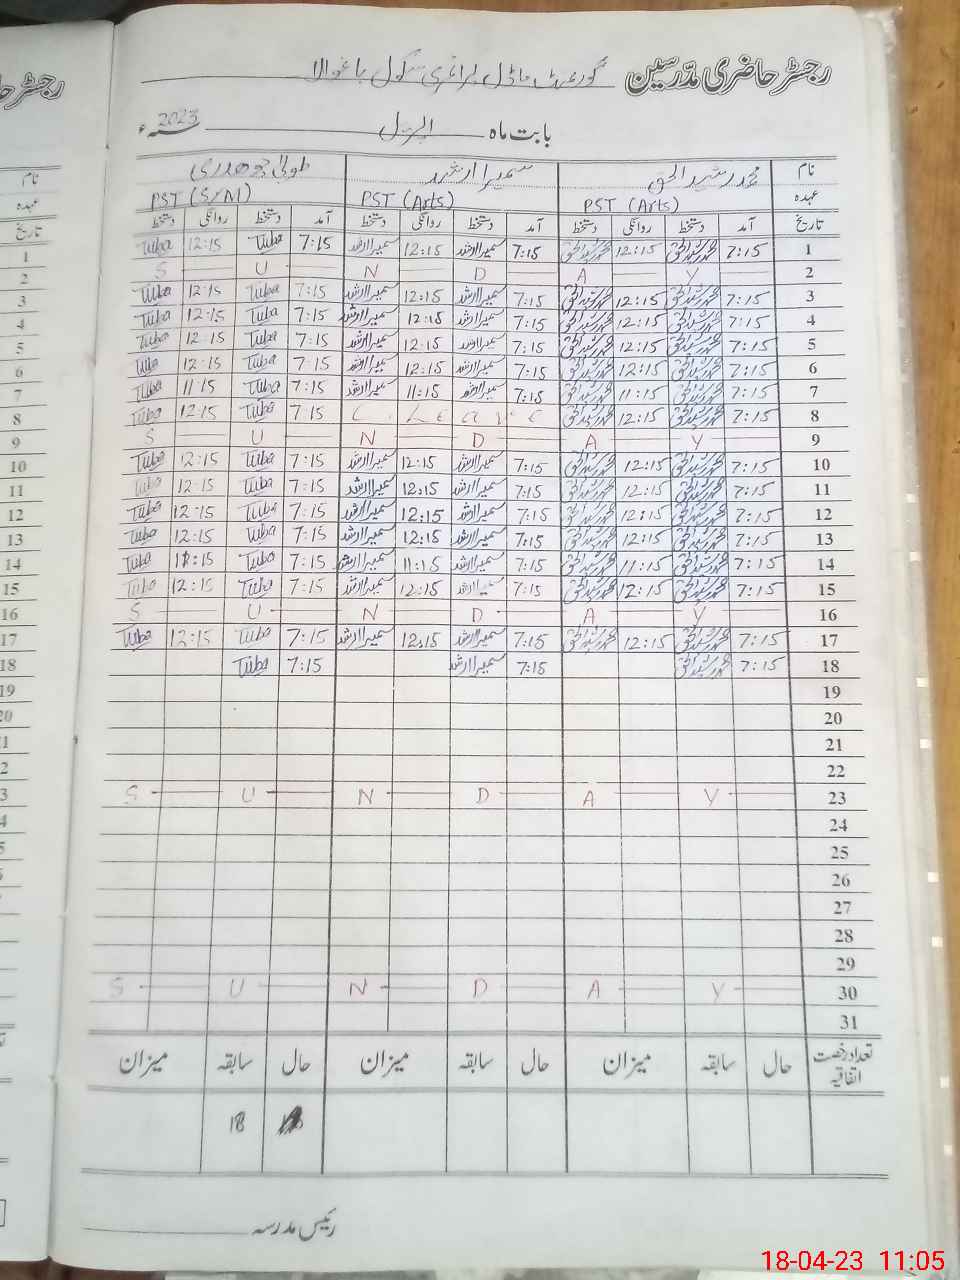 رجسٹر حاضری مدرسین گورنمنٹ ماڈل پرائمری سکول باغوالا
بابت ماہ اپریل 2023 سنہء
نام محمد رشید الحق سمیرا ارشد طوبیٰ چوھدری
عہدہ PST (Arts) PST (Arts) PST (S/M)
تاریخ آمد دستخط روانگی دستخط آمد دستخط روانگی دستخط آمد دستخط روانگی دستخط
1 7:15 محمد رشید الحق 12:15 محمد رشید الحق 7:15 سمیرا ارشد 12:15 سمیرا ارشد 7:15 Tuba 12:15 Tuba
2 S U N D A Y
3 7:15 محمد رشید الحق 12:15 محمد رشید الحق 7:15 سمیرا ارشد 12:15 سمیرا ارشد 7:15 Tuba 12:15 Tuba
4 7:15 محمد رشید الحق 12:15 محمد رشید الحق 7:15 سمیرا ارشد 12:15 سمیرا ارشد 7:15 Tuba 12:15 Tuba
5 7:15 محمد رشید الحق 12:15 محمد رشید الحق 7:15 سمیرا ارشد 12:15 سمیرا ارشد 7:15 Tuba 12:15 Tuba
6 7:15 محمد رشید الحق 12:15 محمد رشید الحق 7:15 سمیرا ارشد 12:15 سمیرا ارشد 7:15 Tuba 12:15 Tuba
7 7:15 محمد رشید الحق 11:15 محمد رشید الحق 7:15 سمیرا ارشد 11:15 سمیرا ارشد 7:15 Tuba 11:15 Tuba
8 7:15 محمد رشید الحق 12:15 محمد رشید الحق C. Leave 7:15 Tuba 12:15 Tuba
9 S U N D A Y
10 7:15 محمد رشید الحق 12:15 محمد رشید الحق 7:15 سمیرا ارشد 12:15 سمیرا ارشد 7:15 Tuba 12:15 Tuba
11 7:15 محمد رشید الحق 12:15 محمد رشید الحق 7:15 سمیرا ارشد 12:15 سمیرا ارشد 7:15 Tuba 12:15 Tuba
12 7:15 محمد رشید الحق 12:15 محمد رشید الحق 7:15 سمیرا ارشد 12:15 سمیرا ارشد 7:15 Tuba 12:15 Tuba
13 7:15 محمد رشید الحق 12:15 محمد رشید الحق 7:15 سمیرا ارشد 12:15 سمیرا ارشد 7:15 Tuba 12:15 Tuba
14 7:15 محمد رشید الحق 11:15 محمد رشید الحق 7:15 سمیرا ارشد 11:15 سمیرا ارشد 7:15 Tuba 11:15 Tuba
15 7:15 محمد رشید الحق 12:15 محمد رشید الحق 7:15 سمیرا ارشد 12:15 سمیرا ارشد 7:15 Tuba 12:15 Tuba
16 S U N D A Y
17 7:15 محمد رشید الحق 12:15 محمد رشید الحق 7:15 سمیرا ارشد 12:15 سمیرا ارشد 7:15 Tuba 12:15 Tuba
18 7:15 محمد رشید الحق 7:15 سمیرا ارشد 7:15 Tuba
19
20
21
22
23 S U N D A Y
24
25
26
27
28
29
30 S U N D A Y
31
تعداد رخصت اتفاقیہ حال سابقہ میزان حال سابقہ میزان حال سابقہ میزان
18
رئیس مدرسہ
18-04-23 11:05